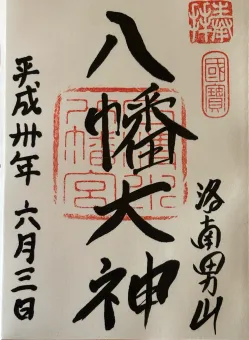 奉拝
國寶
洛南男山
八幡大神
石清水八幡宮
平成卅年六月三日